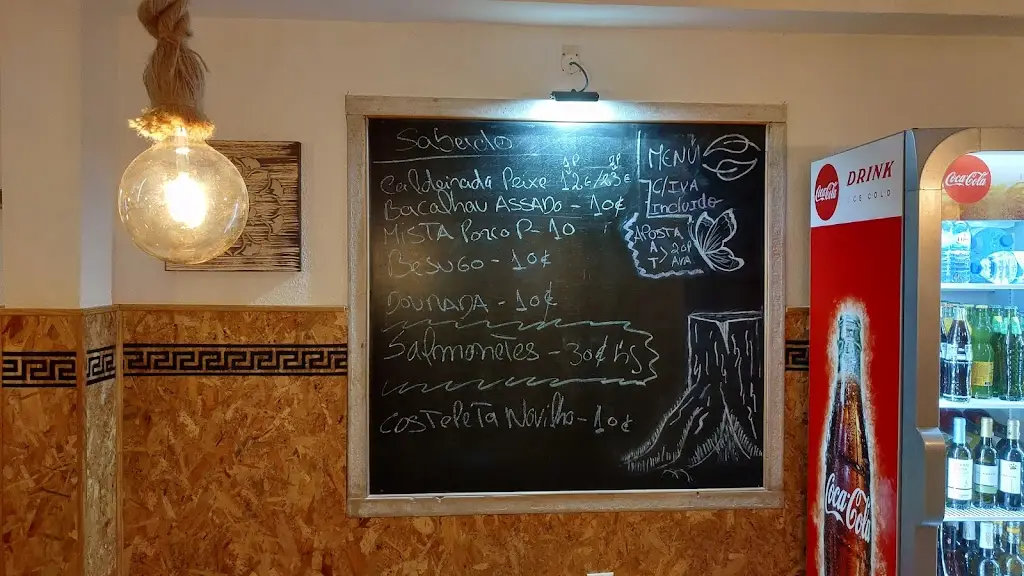 Sabado
1P 2P
Caldeirada Peixe 12€/23€
Bacalhau Assado - 10€
Mista Porco P - 10
Besugo - 10€
Dourada - 10€
Salmonetes - 30€ kg
Costeleta Novilho - 10€
MENU
C/IVA
Incluido
APOSTA
A
T
Coca-Cola
DRINK
ICE COLD
Coca-Cola
Coca-Cola